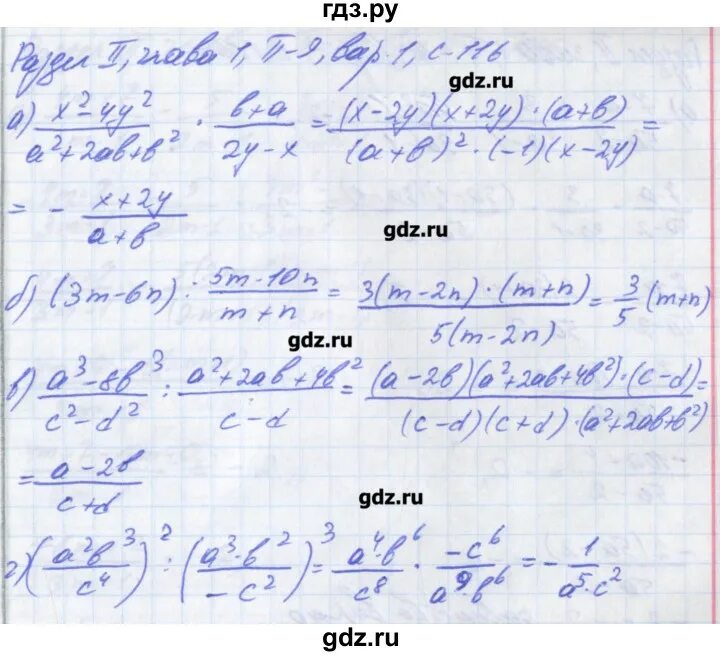 гдз.ру
Раздел II, глава 1, П-9, вар. 1, с-116
gdz.ru
а) \frac{x^2-4y^2}{a^2+2ab+b^2} \cdot \frac{b+a}{2y-x} = \frac{(x-2y)(x+2y)\cdot(a+b)}{(a+b)^2\cdot(-1)(x-2y)} =
= -\frac{x+2y}{a+b}
gdz.ru
б) (3m-6n) : \frac{5m-10n}{m+n} = \frac{3(m-2n)\cdot(m+n)}{5(m-2n)} = \frac{3}{5}(m+n)
gdz.ru
в) \frac{a^3-8b^3}{c^2-d^2} : \frac{a^2+2ab+4b^2}{c-d} = \frac{(a-2b)(a^2+2ab+4b^2)\cdot(c-d)}{(c-d)(c+d)\cdot(a^2+2ab+b^2)} =
= \frac{a-2b}{c+d}
gdz.ru
г) \left(\frac{a^2b^3}{c^4}\right)^2 : \left(\frac{a^3\cdot b^2}{-c^2}\right)^3 = \frac{a^4\cdot b^6}{c^8} \cdot \frac{-c^6}{a^9\cdot b^6} = -\frac{1}{a^5\cdot c^2}
gdz.ru